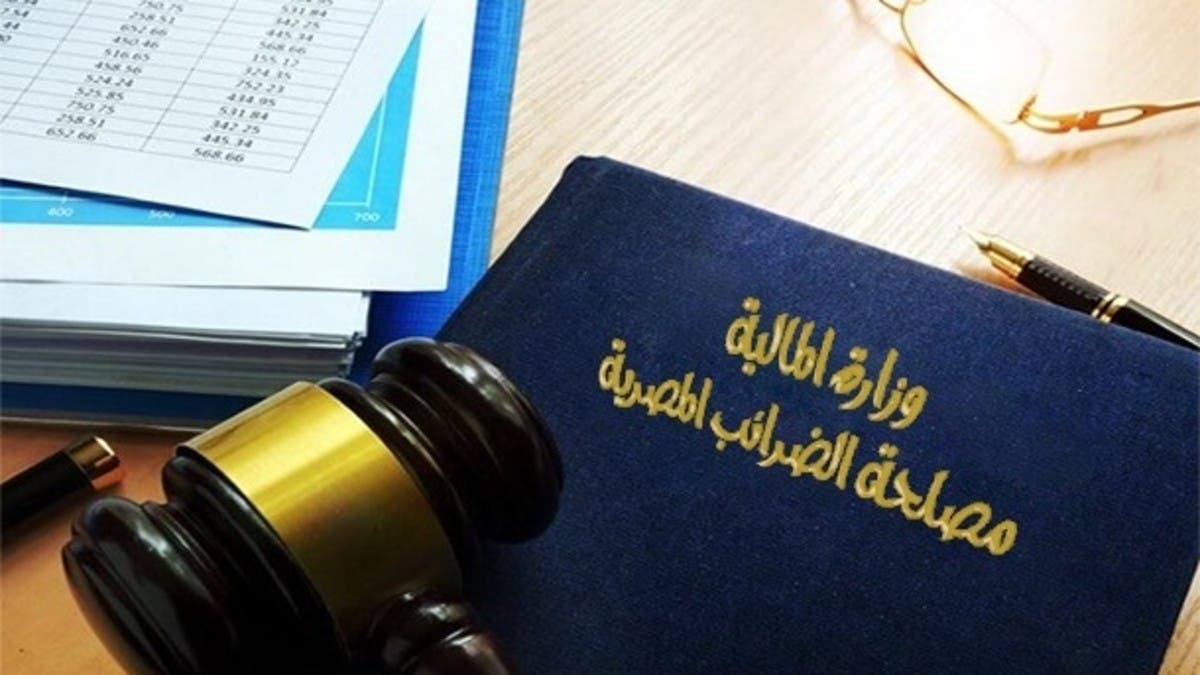 750.75 531.84
258.51 342.25
652.66 445.34
450.46 568.66
516.65 155.12
458.56 324.35
524.24 752.23
525.85 434.95
750.75 531.84
258.51 342.25
652.66 445.34
568.66
400 500 700
وزارة المالية
مصلحة الضرائب المصرية